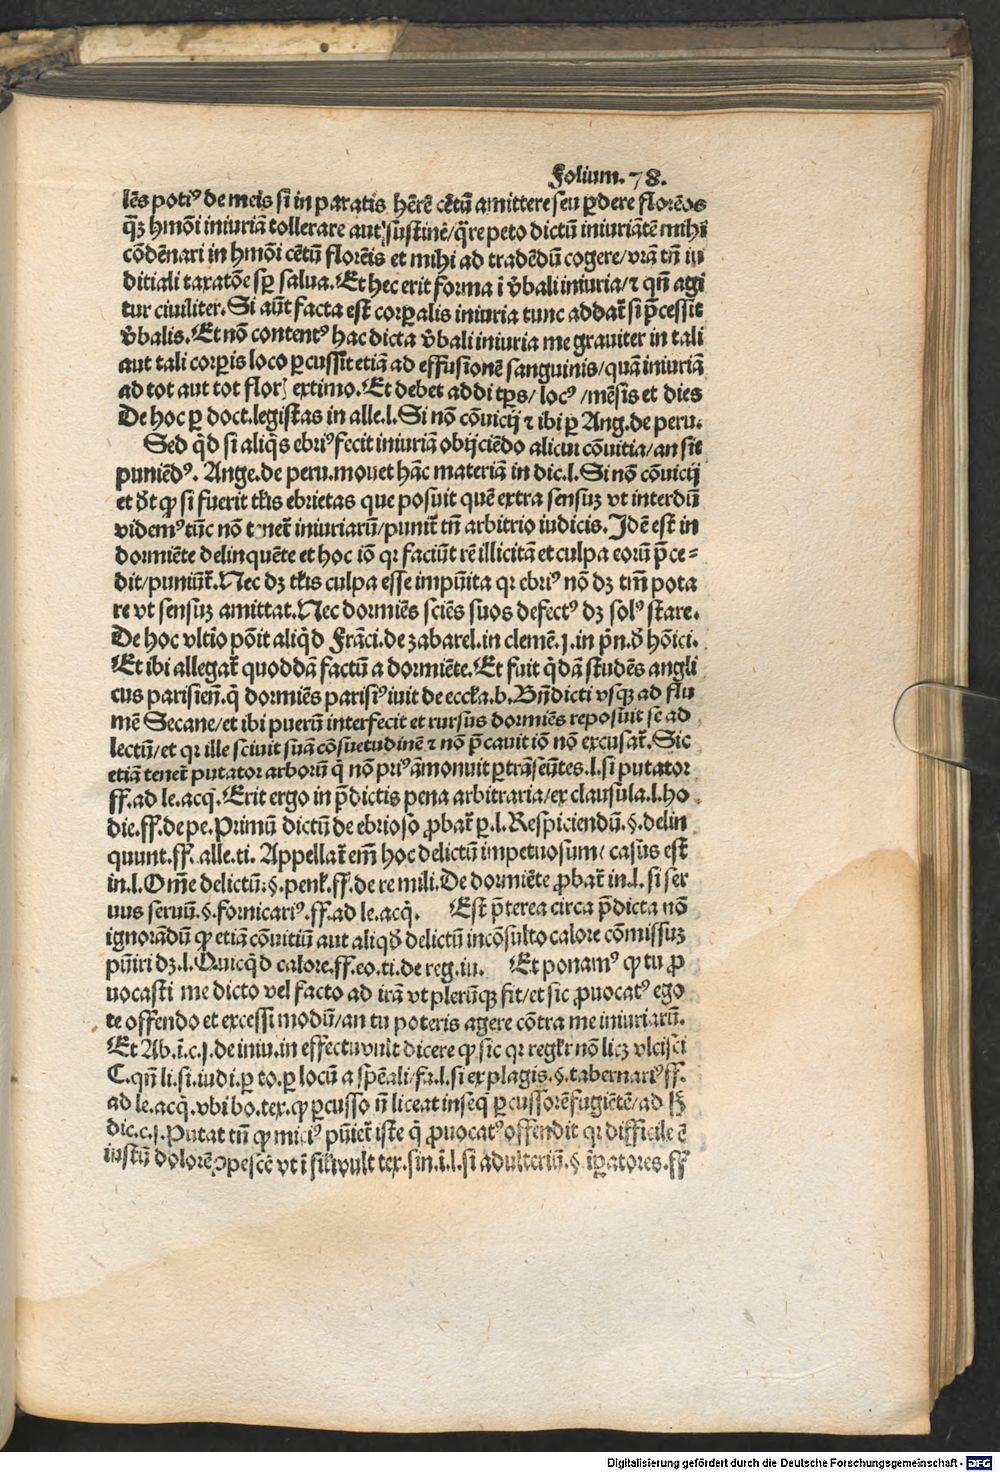 Folium. 78.
lēs potiꝰ de meis si in paratis hēre cētū amittere seu ꝑdere florēos
qᷓꝫ hmōi iniuriā tollerare aut sustinē/ q̄re peto dictū iniuriātē mihi
cōdēnari in hmōi cētū florēis et mihi ad tradēdū cogere/ vrā tn̄ iu
ditiali taxatōe sꝑ salua. Et hec erit forma ī v̄bali iniuria/ ⁊ qn̄ agi
tur ciuiliter. Si aūt facta est corꝑalis iniuria tunc addat̄ si p̄cessit
v̄balis. Et nō contentꝰ hac dicta v̄bali iniuria me grauiter in tali
aut tali corꝑis loco ꝑcussit etiā ad effusionē sanguinis/ quā iniuriā
ad tot aut tot flor̄ extimo. Et debet addi tꝑs/ locꝰ /mēsis et dies
De hoc ꝑ doct. legistas in alle. l. Si nō cōuicij ⁊ ibi ꝑ Ang. de peru.
Sed qͥd si aliqͥs ebriꝰ fecit iniuriā obijciēdo alicui cōuitia/ an sit
puniēdꝰ. Ange. de peru. mouet hāc materiā in dic. l. Si nō cōuicij
et dꝫt ꝙ si fuerit tłis ebrietas que posuit quē extra sensuꝫ vt interdū
videmꝰ tūc nō tenet̄ iniuriarū/ punit̄ tn̄ arbitrio iudicis. Idē est in
dormiēte delinquēte et hoc iō qꝛ faciūt rē illicitā et culpa eorū p̄ce-
dit/ puniūt̄. Nec dꝫ tłis culpa esse impūita qꝛ ebriꝰ nō dꝫ tm̄ pota
re vt sensuꝫ amittat. Nec dormiēs sciēs suos defectꝰ dꝫ solꝰ stare.
De hoc vltio pōit aliqͥd Frāci. de zabarel. in clemē. j. in pͥn. d̄ hōici.
Et ibi allegat̄ quoddā factū a dormiēte. Et fuit qͥdā studēs angli
cus parisien̄. qͥ dormiēs parisiꝰ iuit de eccła. b. Bn̄dicti vsqꝫ ad flu
mē Secane/ et ibi puerū interfecit et rursus dormiēs reposuit se ad
lectū/ et qꝛ ille sciuit suā cōsuetudinē ⁊ nō p̄cauit iō nō excusat̄. Sic
etiā tenet̄ putator arborū qͥ nō priꝰ āmonuit ꝑtrāseūtes. l. si putator
ff. ad le. acqͥ. Erit ergo in p̄dictis pena arbitraria/ ex clausula. l. ho
die. ff. de pe. Primū dictū de ebrioso ꝓbat̄ ꝑ. l. Respiciendū. §. delin
quunt. ff. alle. ti. Appellat̄ em̄ hoc delictū impetuosum/ casus est
in. l. Om̄e delictū. §. penł. ff. de re mili. De dormiēte ꝓbat̄ in. l. si ser
uus seruū. §. fornicariꝰ. ff. ad le. acqͥ. Est p̄terea circa p̄dicta nō
ignorādū ꝙ etiā cōuitiū aut aliqd̄ delictū incōsulto calore cōmissuꝫ
pūiri dꝫ. l. Quicqͥd calore. ff. eo. ti. de reg. iu. Et ponamꝰ ꝙ tu ꝓ
uocasti me dicto vel facto ad irā vt plerūqꝫ fit/ et sic ꝓuocatꝰ ego
te offendo et excessi modū/ an tu poteris agere cōtra me iniuriarū.
Et Ab. ī. c. j. de iniu. in effectu vult dicere ꝙ sic qꝛ regłr nō licꝫ vlcisci
C. qn̄ li. si. iudi. ꝑ to. ꝑ locū a spēali/ fa. l. si ex plagis. §. tabernariꝰ ff.
ad le. acqͥ. vbi bo. tex. ꝙ ꝑcusso n̄ liceat inseqͥ ꝑcussorē fugiētē/ ad
dic. c. j. Putat tn̄ ꝙ mitiꝰ pūiet̄ iste qͥ ꝓuocatꝰ offendit qꝛ difficile ē
iustū dolorē ꝯpescē vt ī siłi vult tex. sin. ī. l. si adulteriū. §. īꝑatores. ff
Digitalisierung gefördert durch die Deutsche Forschungsgemeinschaft - DFG